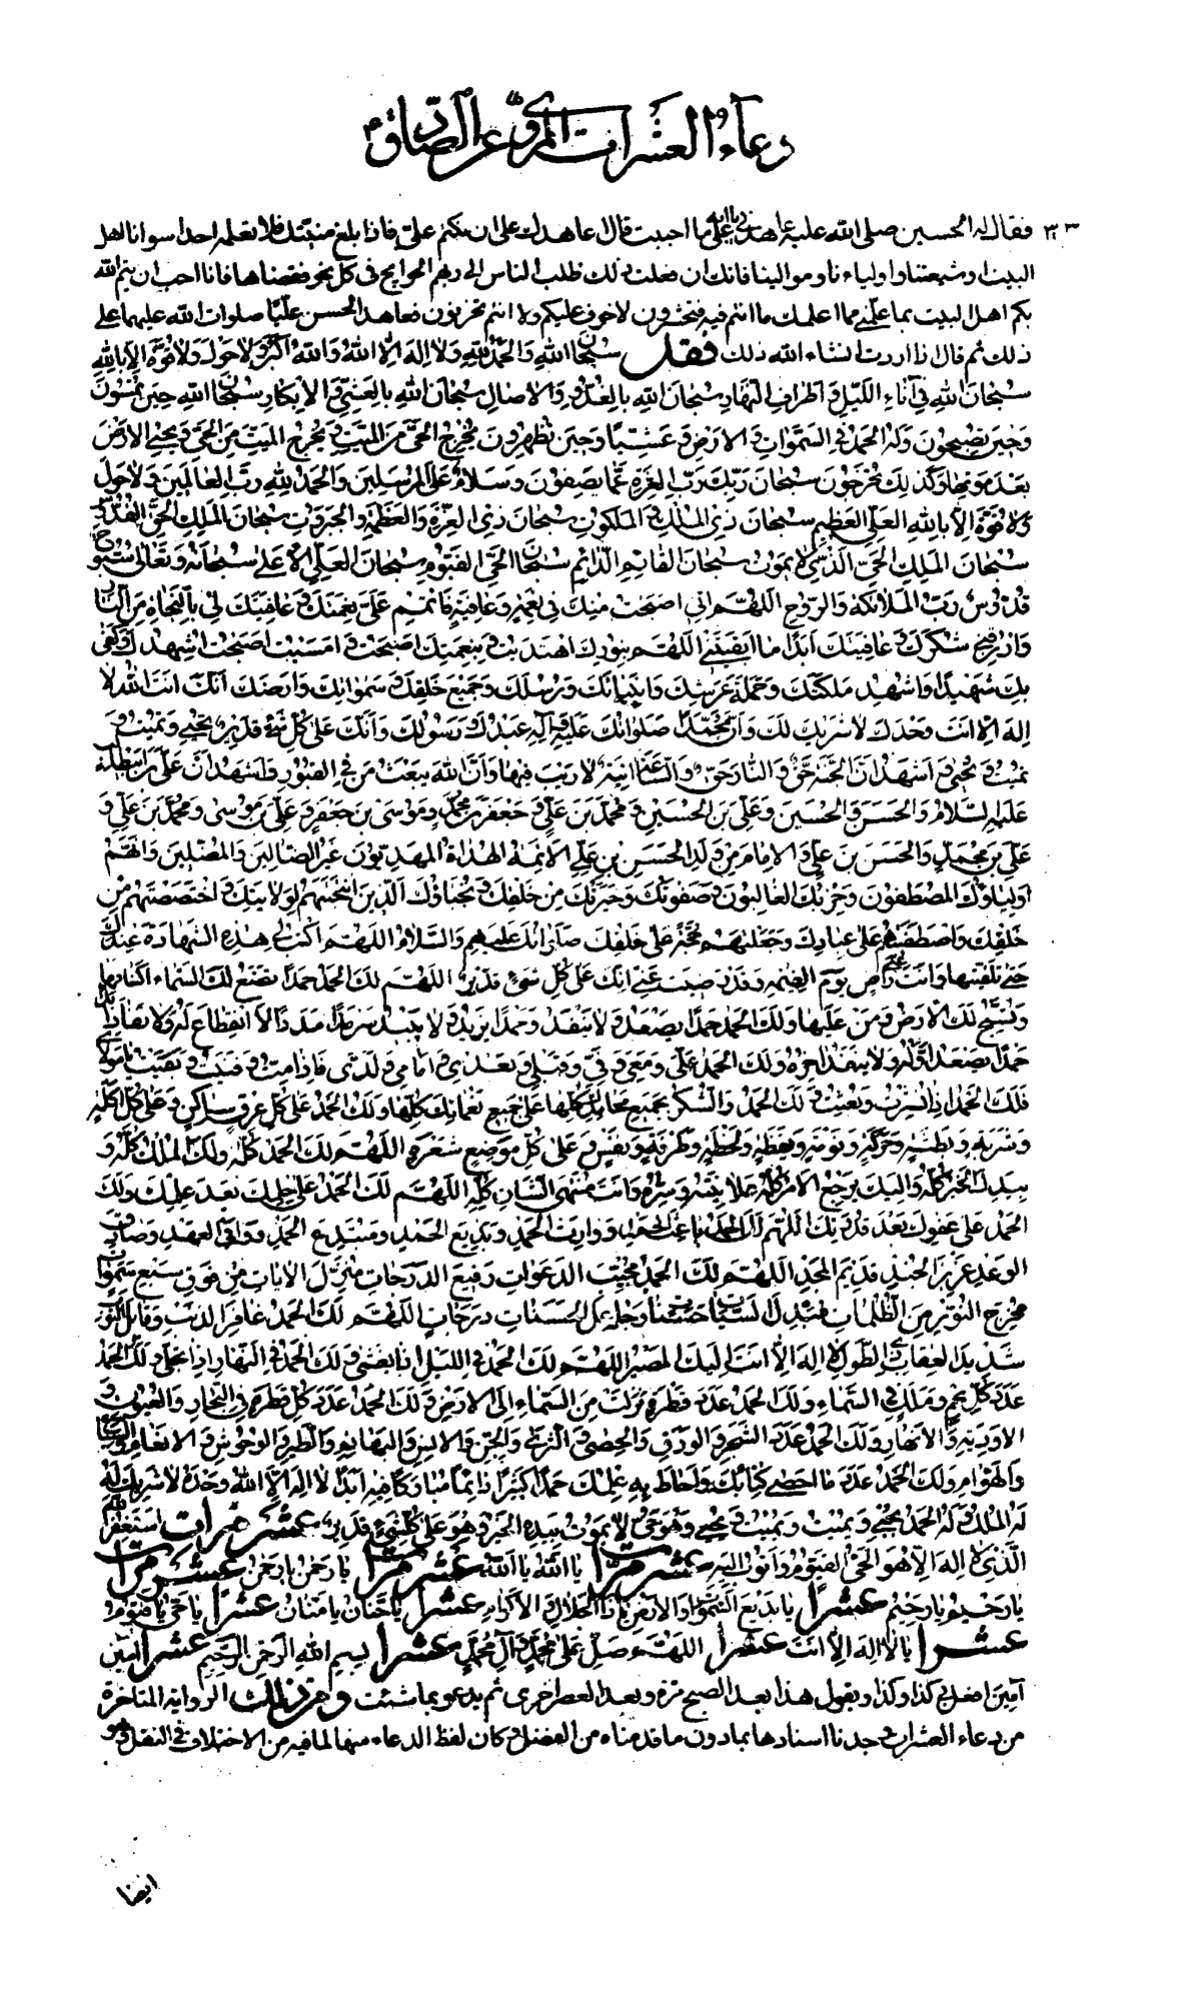 دعاء العشرات المروي عن الصادق ع
٣٣ فقال له الحسين صلى الله عليه عاهدني يا ابه على ما احببت قال اعاهدك على ان تكتم علي فاذا بلغ منيتك فلا تعلمه احدا سوانا اهل
البيت او شيعتنا واولياءنا وموالينا فانك ان فعلت ذلك طلب الناس الى ربهم الحوايج في كل نحو فقضاها فانا احب ان يتم الله
بكم اهل البيت بما علمني مما اعلمك ما انتم فيه فتحشرون لا خوف عليكم ولا انتم تحزنون فعاهد الحسن عليا صلوات الله عليهما على
ذلك ثم قال اذا اردت انشاء الله ذلك فقل سُبْحَانَ اللهِ وَالحَمْدُ لِلّهِ وَلا إِلهَ إِلَّا اللهُ وَاللهُ أكْبَرُ وَلا حَوْلَ وَلا قُوَّةَ إِلّا بِاللهِ
سُبْحَانَ اللهِ فِي آنَاءِ اللَّيْلِ وَأطْرافِ النَّهَارِ سُبْحَانَ اللهِ بِالغُدُوِّ وَالآصَالِ سُبْحَانَ اللهِ بِالعَشِيِّ وَالإِبْكَارِ سُبْحَانَ اللهِ حِينَ تُمْسُونَ
وَحِينَ تُصْبِحُونَ وَلَهُ الحَمْدُ فِي السَّمَوَاتِ وَالأرْضِ وَعَشِيًّا وَحِينَ تُظْهِرُونَ يُخْرِجُ الحَيَّ مِنَ المَيِّتِ وَيُخْرِجُ المَيِّتَ مِنَ الحَيِّ وَيُحْيِي الأرْضَ
بَعْدَ مَوْتِهَا وَكَذلِكَ تُخْرَجُونَ سُبْحَانَ رَبِّكَ رَبِّ العِزَّةِ عَمَّا يَصِفُونَ وَسَلامٌ عَلَى المُرْسَلِينَ وَالحَمْدُ لِلّهِ رَبِّ العَالَمِينَ وَلا حَوْلَ
وَلا قُوَّةَ إِلّا بِاللهِ العَلِيِّ العَظِيمِ سُبْحَانَ ذِي المُلْكِ وَالمَلَكُوتِ سُبْحَانَ ذِي العِزَّةِ وَالعَظَمَةِ وَالجَبَرُوتِ سُبْحَانَ المَلِكِ الحَقِّ القُدُّوسِ
سُبْحَانَ المَلِكِ الحَيِّ الَّذِي لا يَمُوتُ سُبْحَانَ القَائِمِ الدَّائِمِ سُبْحَانَ الحَيِّ القَيُّومِ سُبْحَانَ العَلِيِّ الأعْلى سُبْحَانَهُ وَتَعَالى سُبُّوحٌ
قُدُّوسٌ رَبُّ المَلائِكَةِ وَالرُّوحِ اللّهُمَّ إِنِّي أصْبَحْتُ مِنْكَ فِي نِعْمَةٍ وَعَافِيَةٍ فَأتْمِمْ عَلَيَّ نِعْمَتَكَ وَعَافِيَتَكَ لِي بِالنَّجَاةِ مِنَ النَّارِ
وَارْزُقْنِي شُكْرَكَ وَعَافِيَتَكَ أبَدًا مَا أبْقَيْتَنِي اللّهُمَّ بِنُورِكَ اهْتَدَيْتُ وَبِنِعْمَتِكَ أصْبَحْتُ وَأمْسَيْتُ أصْبَحْتُ أُشْهِدُكَ وَكَفى
بِكَ شَهِيدًا وَأُشْهِدُ مَلائِكَتَكَ وَحَمَلَةَ عَرْشِكَ وَأنْبِيَائَكَ وَرُسُلَكَ وَجَمِيعَ خَلْقِكَ وَسَمَوَاتِكَ وَأرْضِكَ أنَّكَ أنْتَ اللهُ لا
إِلهَ إِلَّا أنْتَ وَحْدَكَ لا شَرِيكَ لَكَ وَأنَّ مُحَمَّدًا صَلَوَاتُكَ عَلَيْهِ وَآلِهِ عَبْدُكَ وَرَسُولُكَ وَأنَّكَ عَلى كُلِّ شَيْءٍ قَدِيرٌ تُحْيِي وَتُمِيتُ وَ
تُمِيتُ وَتُحْيِي وَأشْهَدُ أنَّ الجَنَّةَ حَقٌّ وَالنَّارَ حَقٌّ وَالسَّاعَةَ آتِيَةٌ لا رَيْبَ فِيهَا وَأنَّ اللهَ يَبْعَثُ مَنْ فِي القُبُورِ وَأشْهَدُ أنَّ عَلِيَّ بْنَ أبِي طَالِبٍ
عَلَيْهِ السَّلامُ وَالحَسَنَ وَالحُسَيْنَ وَعَلِيَّ بْنَ الحُسَيْنِ وَمُحَمَّدَ بْنَ عَلِيٍّ وَجَعْفَرَ بْنَ مُحَمَّدٍ وَمُوسَى بْنَ جَعْفَرٍ وَعَلِيَّ بْنَ مُوسى وَمُحَمَّدَ بْنَ عَلِيٍّ وَ
عَلِيَّ بْنَ مُحَمَّدٍ وَالحَسَنَ بْنَ عَلِيٍّ وَالإِمَامَ مِنْ وَلَدِ الحَسَنِ بْنِ عَلِيٍّ الأئِمَّةُ الهُدَاةُ المَهْدِيُّونَ غَيْرُ الضَّالِّينَ وَالمُضِلِّينَ وَأنَّهُمْ
أوْلِيَاؤُكَ المُصْطَفَوْنَ وَحِزْبُكَ الغَالِبُونَ وَصَفْوَتُكَ وَخِيَرَتُكَ مِنْ خَلْقِكَ وَنُجَبَاؤُكَ الَّذِينَ انْتَجَبْتَهُمْ لِوِلايَتِكَ وَاخْتَصَصْتَهُمْ مِنْ
خَلْقِكَ وَاصْطَفَيْتَهُمْ عَلى عِبَادِكَ وَجَعَلْتَهُمْ حُجَّةً عَلى خَلْقِكَ صَلَوَاتُكَ عَلَيْهِمْ وَالسَّلامُ اللّهُمَّ اكْتُبْ لِي هذِهِ الشَّهَادَةَ عِنْدَكَ
حَتّى تُلَقِّنَهَا وَأنْتَ عَنِّي رَاضٍ يَوْمَ القِيمَةِ وَقَدْ رَضِيتَ عَنِّي إِنَّكَ عَلى كُلِّ شَيْءٍ قَدِيرٌ اللّهُمَّ لَكَ الحَمْدُ حَمْدًا تَضَعُ لَكَ السَّمَاءُ أكْنَافَهَا
وَتُسَبِّحُ لَكَ الأرْضُ وَمَنْ عَلَيْهَا وَلَكَ الحَمْدُ حَمْدًا يَصْعَدُ وَلا يَنْفَدُ وَحَمْدًا يَزِيدُ وَلا يَبِيدُ سَرْمَدًا مَدَدًا لا انْقِطَاعَ لَهُ وَلا نَفَادَ أبَدًا
حَمْدًا يَصْعَدُ أوَّلُهُ وَلا يَنْفَدُ آخِرُهُ وَلَكَ الحَمْدُ عَلَيَّ وَمَعِي وَفِيَّ وَقَبْلِي وَبَعْدِي وَأمَامِي وَلَدَيَّ فَإِذَا مِتُّ وَفَنِيتُ وَبَقِيتَ يَا مَوْلايَ
فَلَكَ الحَمْدُ إِذَا نُشِرْتُ وَبُعِثْتُ وَلَكَ الحَمْدُ وَالشُّكْرُ بِجَمِيعِ مَحَامِدِكَ كُلِّهَا عَلى جَمِيعِ نَعْمَائِكَ كُلِّهَا وَلَكَ الحَمْدُ عَلى كُلِّ عِرْقٍ سَاكِنٍ وَعَلى كُلِّ أكْلَةٍ
وَشَرْبَةٍ وَبَطْشَةٍ وَحَرَكَةٍ وَنَوْمَةٍ وَيَقْظَةٍ وَلَحْظَةٍ وَطَرْفَةٍ وَنَفَسٍ وَعَلى كُلِّ مَوْضِعِ شَعْرَةٍ اللّهُمَّ لَكَ الحَمْدُ كُلُّهُ وَلَكَ المُلْكُ كُلُّهُ وَ
بِيَدِكَ الخَيْرُ كُلُّهُ وَإِلَيْكَ يَرْجِعُ الأمْرُ كُلُّهُ عَلانِيَتُهُ وَسِرُّهُ وَأنْتَ مُنْتَهَى الشَّأنِ كُلِّهِ اللّهُمَّ لَكَ الحَمْدُ عَلى حِلْمِكَ بَعْدَ عِلْمِكَ وَلَكَ
الحَمْدُ عَلى عَفْوِكَ بَعْدَ قُدْرَتِكَ اللّهُمَّ لَكَ الحَمْدُ بَاعِثَ الحَمْدِ وَوَارِثَ الحَمْدِ وَبَدِيعَ الحَمْدِ وَمُبْتَدِعَ الحَمْدِ وَوَافِيَ العَهْدِ وَصَادِقَ
الوَعْدِ عَزِيزَ الجُنْدِ قَدِيمَ المَجْدِ اللّهُمَّ لَكَ الحَمْدُ مُجِيبَ الدَّعَوَاتِ رَفِيعَ الدَّرَجَاتِ مُنْزِلَ الآيَاتِ مِنْ فَوْقِ سَبْعِ سَمَوَاتٍ
مُخْرِجَ النُّورِ مِنَ الظُّلُمَاتِ مُبَدِّلَ السَّيِّئَاتِ حَسَنَاتٍ وَجَاعِلَ الحَسَنَاتِ دَرَجَاتٍ اللّهُمَّ لَكَ الحَمْدُ غَافِرَ الذَّنْبِ وَقَابِلَ التَّوْبِ
شَدِيدَ العِقَابِ ذِي الطَّوْلِ لا إِلهَ إِلَّا أنْتَ إِلَيْكَ المَصِيرُ اللّهُمَّ لَكَ الحَمْدُ فِي اللَّيْلِ إِذَا يَغْشى وَلَكَ الحَمْدُ فِي النَّهَارِ إِذَا تَجَلّى وَلَكَ الحَمْدُ
عَدَدَ كُلِّ نَجْمٍ وَمَلَكٍ فِي السَّمَاءِ وَلَكَ الحَمْدُ عَدَدَ قَطْرَةٍ نَزَلَتْ مِنَ السَّمَاءِ إِلَى الأرْضِ وَلَكَ الحَمْدُ عَدَدَ كُلِّ قَطْرَةٍ فِي البِحَارِ وَالعُيُونِ وَ
الأوْدِيَةِ وَالأنْهَارِ وَلَكَ الحَمْدُ عَدَدَ الشَّجَرِ وَالوَرَقِ وَالحَصى وَالثَّرى وَالجِنِّ وَالإِنْسِ وَالبَهَائِمِ وَالطَّيْرِ وَالوُحُوشِ وَالأنْعَامِ وَالسِّبَاعِ
وَالهَوَامِّ وَلَكَ الحَمْدُ عَدَدَ مَا أحْصى كِتَابُكَ وَأحَاطَ بِهِ عِلْمُكَ حَمْدًا كَثِيرًا دَائِمًا مُبَارَكًا فِيهِ أبَدًا لا إِلهَ إِلَّا اللهُ وَحْدَهُ لا شَرِيكَ لَهُ
لَهُ المُلْكُ وَلَهُ الحَمْدُ يُحْيِي وَيُمِيتُ وَيُمِيتُ وَيُحْيِي وَهُوَ حَيٌّ لا يَمُوتُ بِيَدِهِ الخَيْرُ وَهُوَ عَلى كُلِّ شَيْءٍ قَدِيرٌ عشر مرات أسْتَغْفِرُ اللهَ
الَّذِي لا إِلهَ إِلَّا هُوَ الحَيُّ القَيُّومُ وَأتُوبُ إِلَيْهِ عشر مرات يَا اللهُ يَا اللهُ عشر مرات يَا رَحْمنُ يَا رَحْمنُ عشر مرات
يَا رَحِيمُ يَا رَحِيمُ عشرا يَا بَدِيعَ السَّمَوَاتِ وَالأرْضِ يَا ذَا الجَلالِ وَالإِكْرَامِ عشرا يَا حَنَّانُ يَا مَنَّانُ عشرا يَا حَيُّ يَا قَيُّومُ
عشرا يَا لا إِلهَ إِلَّا أنْتَ عشرا اللّهُمَّ صَلِّ عَلى مُحَمَّدٍ وَآلِ مُحَمَّدٍ عشرا بِسْمِ اللهِ الرَّحْمنِ الرَّحِيمِ عشرا آمِينَ
آمِينَ افعل بي كذا وكذا ويقول هذا بعد الصبح مرة وبعد العصر اخرى ثم يدعو بما شئت ومن ذلك الرواية المتاخرة
من دعاء العشرات وجدنا اسنادها بما دون ما قدمناه من الفضل وكان لفظ الدعاء منها لما فيه من الاختلاف في النقل وهو
ايضا